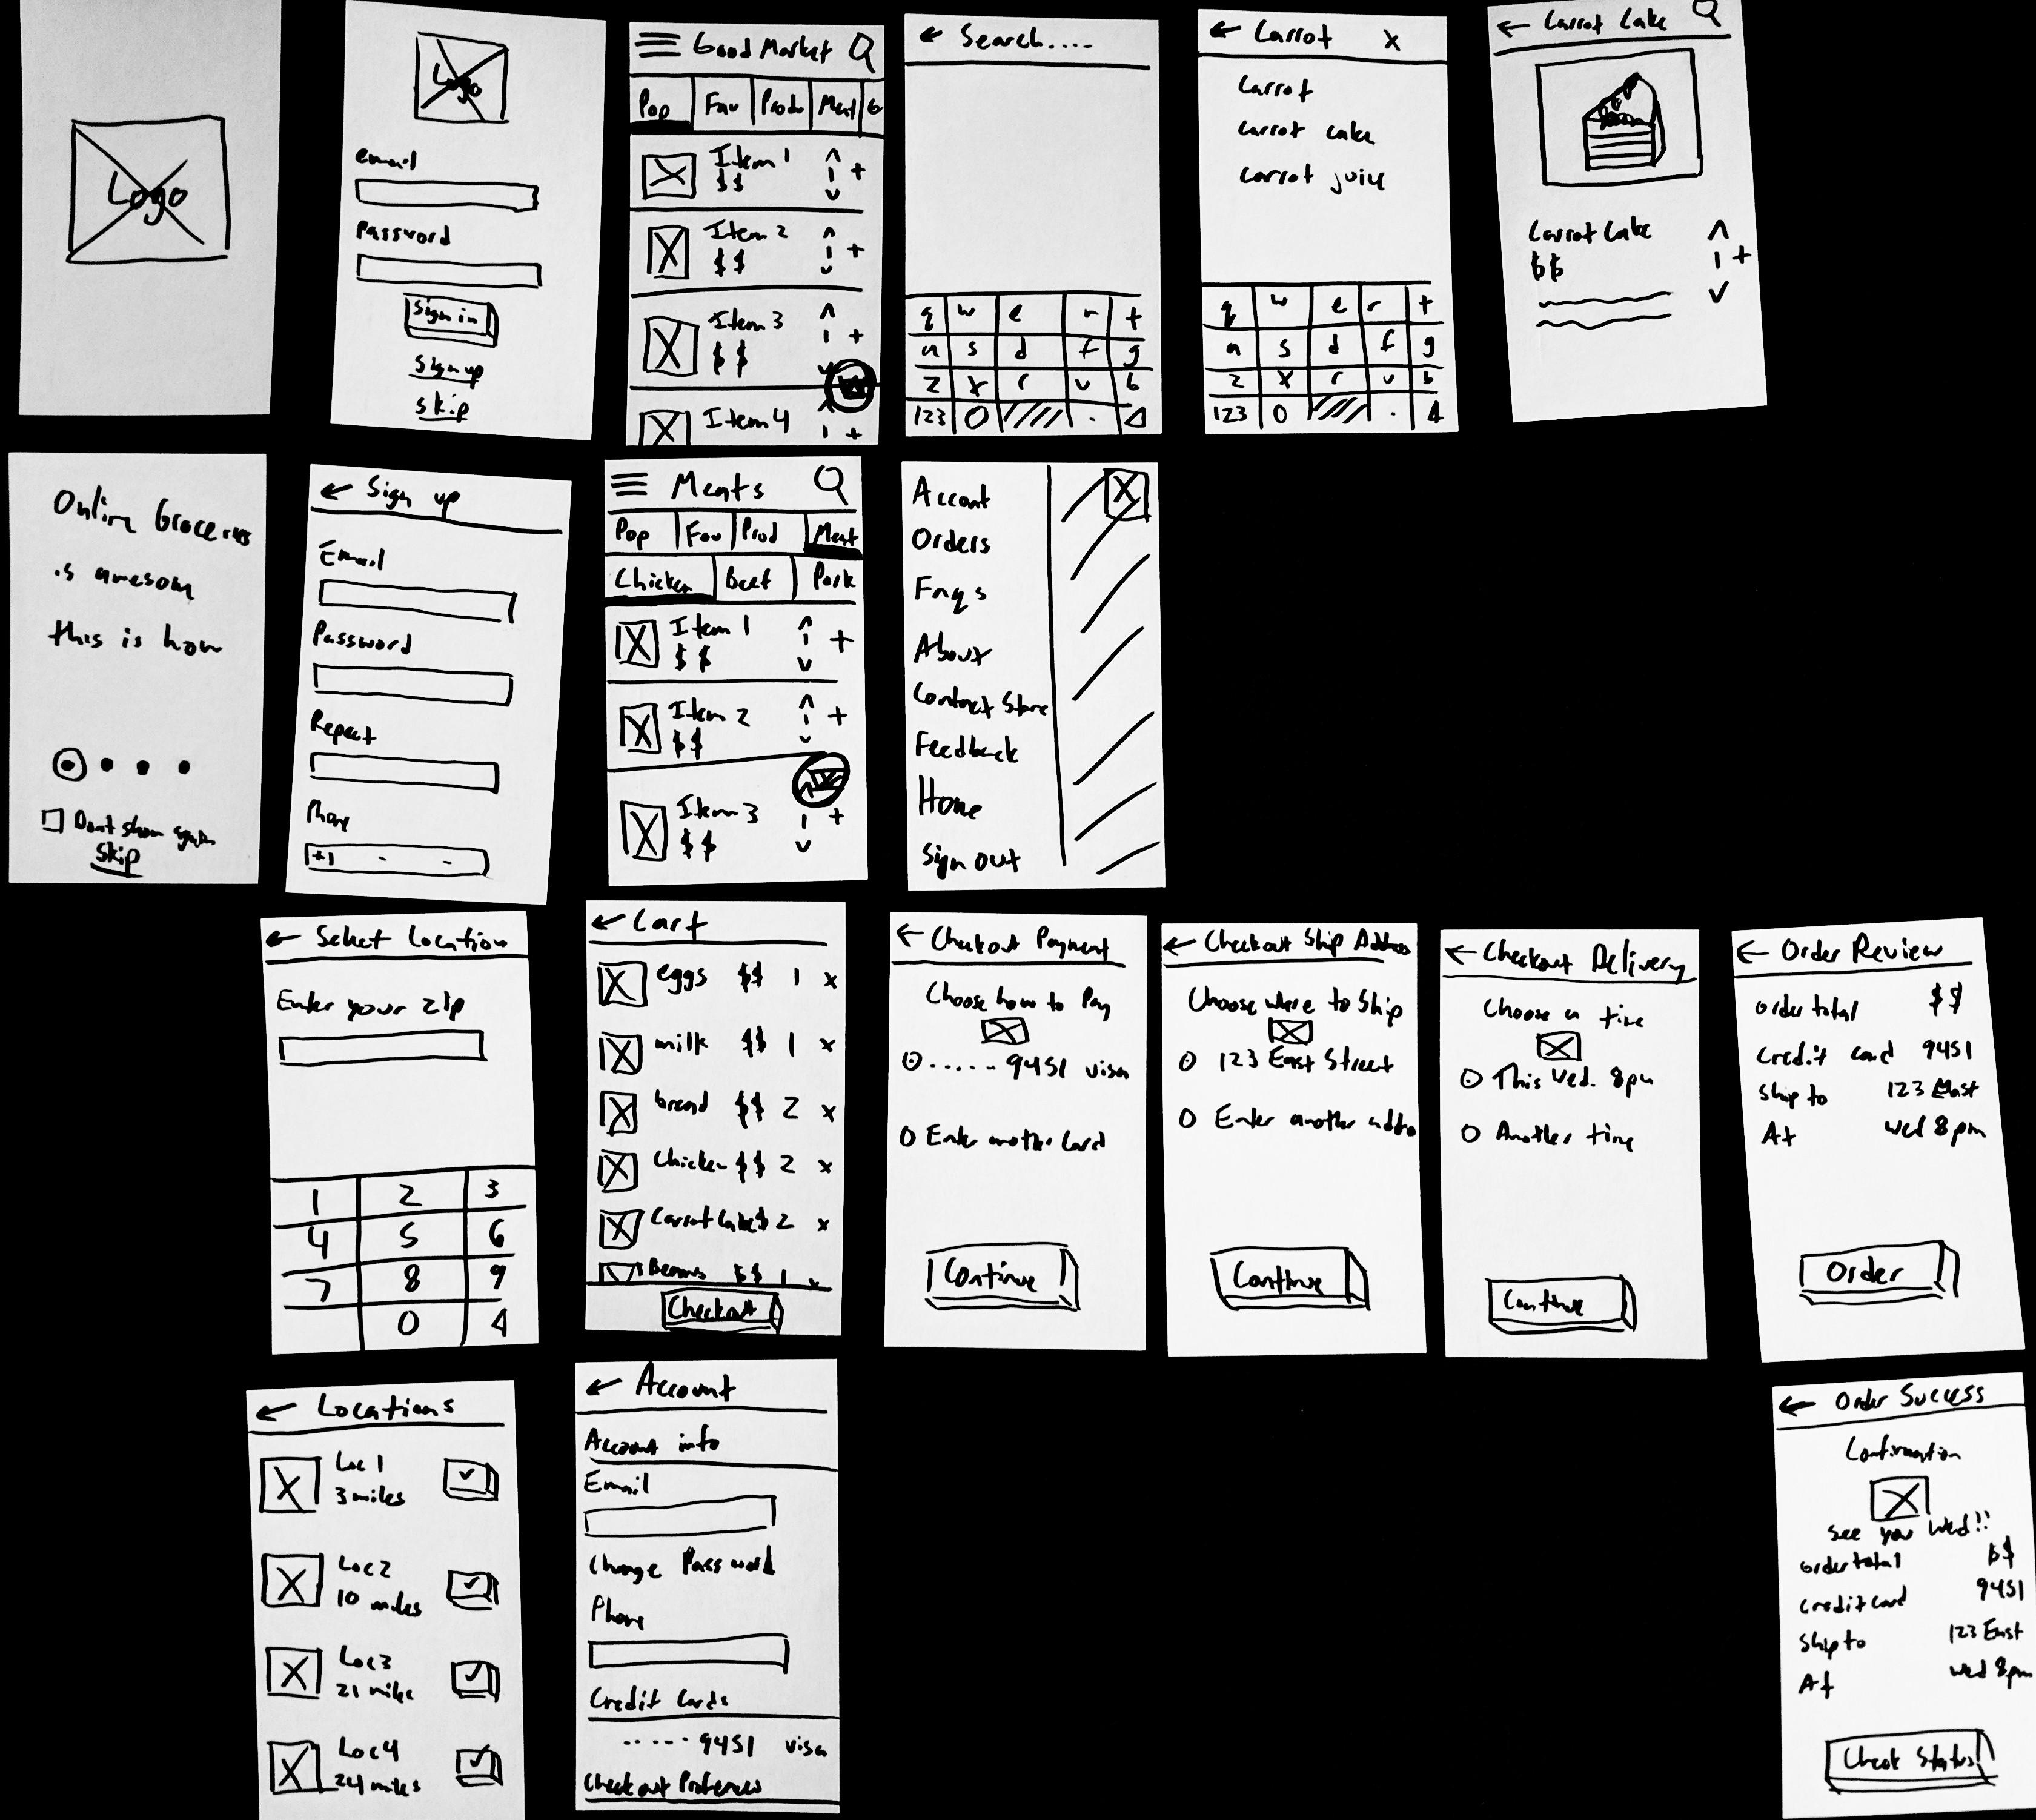 Logo
Logo
email
Password
Sign in
Sign up
Skip
Good Market
Pop Fav Produ Meat G
Item 1
$$ 1 +
Item 2
$$ 1 +
Item 3
$$ 1 +
Item 4
1 +
Search....
q w e r t
a s d f g
z x r v b
123 O .
Carrot X
Carrot
Carrot cake
carrot juice
q w e r t
a s d f g
z x r v b
123 O .
Carrot Cake
Carrot Cake
$$ 1 +
Online Groceries
is awesom
this is how
Dont show again
Skip
Sign up
Email
Password
Repeat
Phone
+1 - -
Meats
Pop Fav Prod Meat
Chicken Beef Pork
Item 1
$$ 1 +
Item 2
$$ 1 +
Item 3
$$ 1 +
Account
Orders
Faqs
About
Contact Store
Feedback
Home
Sign out
X
Select Location
Enter your zip
1 2 3
4 5 6
7 8 9
0
Cart
eggs $$ 1 x
milk $$ 1 x
bread $$ 2 x
Chicken $$ 2 x
Carrot Cake $ 2 x
Beans $$ 1 x
Checkout
Checkout Payment
Choose how to Pay
..... 9451 visa
Enter another Card
Continue
Checkout Ship Address
Choose where to Ship
123 East Street
Enter another addre
Continue
Checkout Delivery
Choose a time
This Wed. 8pm
Another time
Continue
Order Review
order total $$
Credit card 9451
Ship to 123 East
At wed 8pm
Order
Locations
Loc 1
3 miles
Loc2
10 miles
Loc3
21 miles
Loc4
24 miles
Account
Account info
Email
Change Password
Phone
Credit Cards
..... 9451 visa
Checkout Preferences
Order Success
Confirmation
See you Wed!!
order total $$
Credit card 9451
Ship to 123 East
At wed 8pm
Check Status